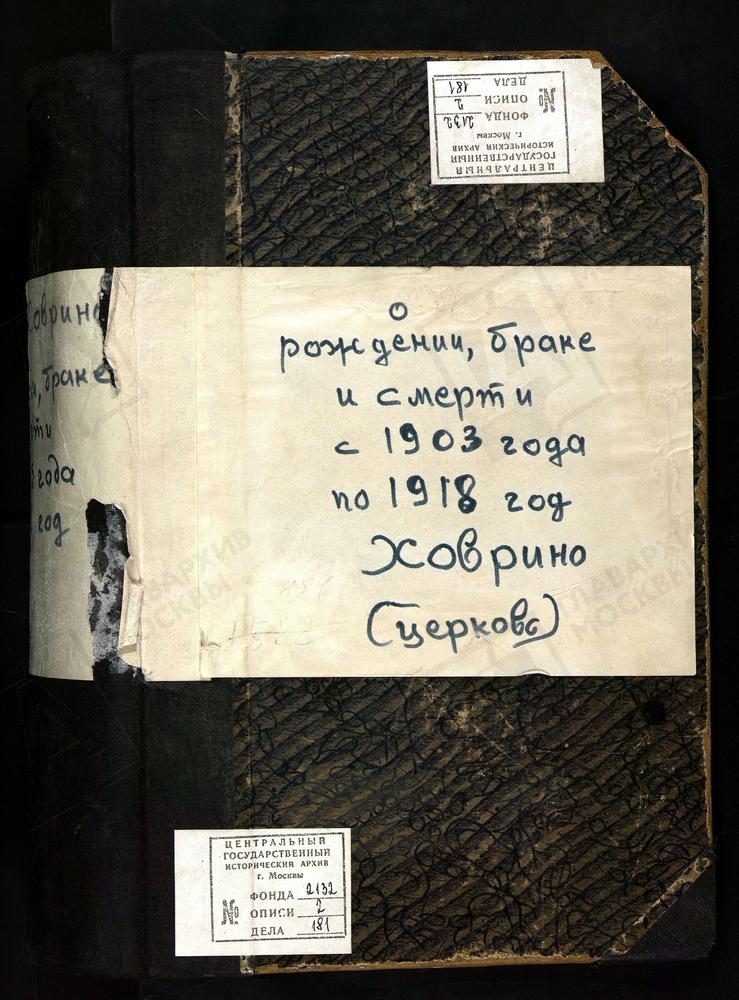 ЦЕНТРАЛЬНЫЙ
ГОСУДАРСТВЕННЫЙ
ИСТОРИЧЕСКИЙ АРХИВ
г. Москвы
№ ФОНДА 2132
ОПИСИ 2
ДЕЛА 181
О
рождении, браке
и смерти
с 1903 года
по 1918 год
Ховрино
(церковь)
Ховрино
браке
года
год
ЦЕНТРАЛЬНЫЙ
ГОСУДАРСТВЕННЫЙ
ИСТОРИЧЕСКИЙ АРХИВ
г. Москвы
№ ФОНДА 2132
ОПИСИ 2
ДЕЛА 181
ГЛАВАРХИВ
МОСКВЫ